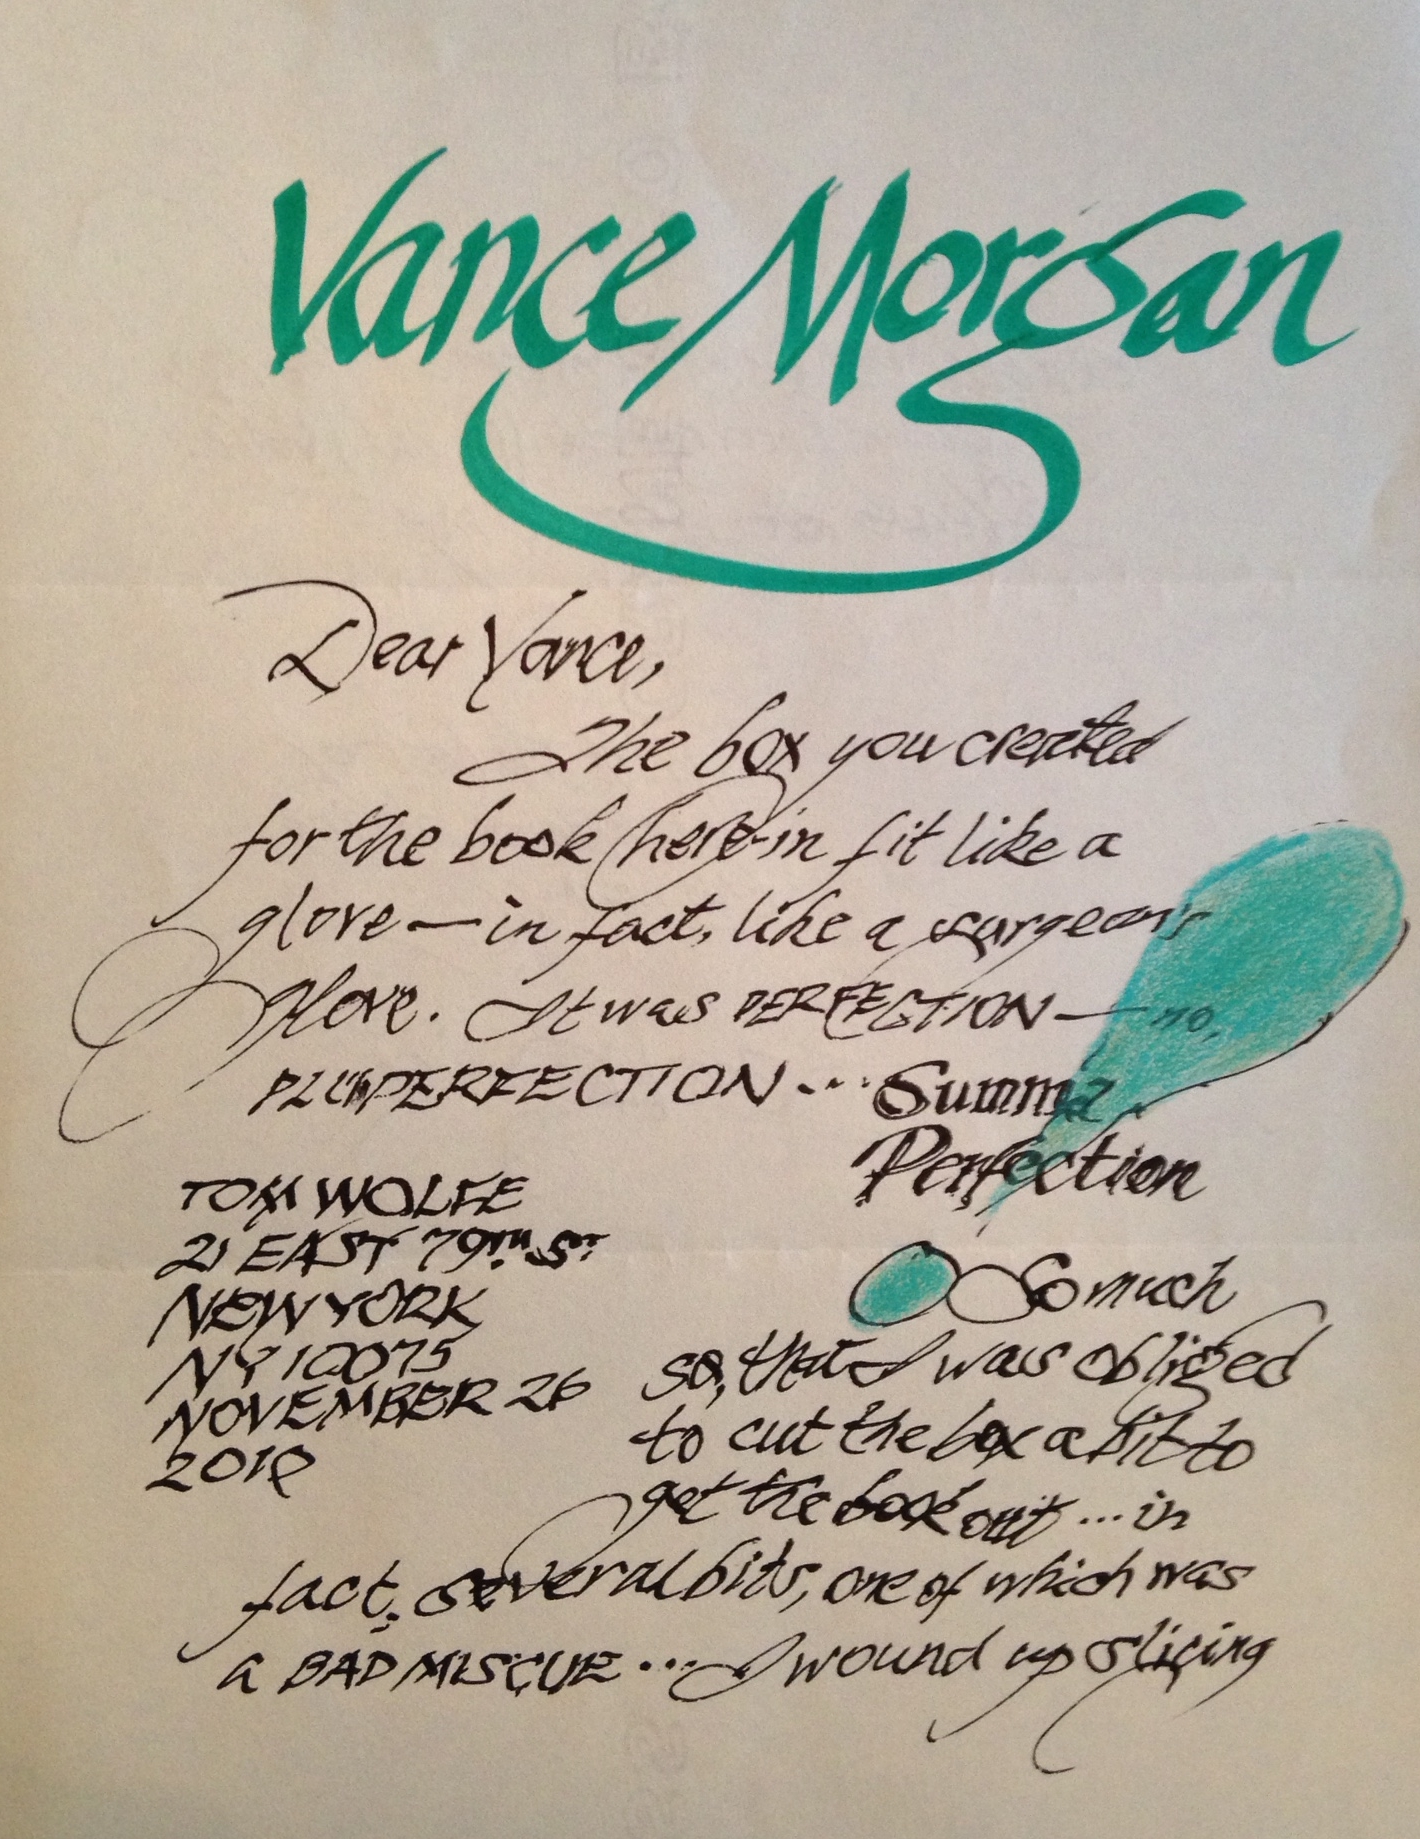 Vance Morgan
Dear Vance,
The box you created
for the book herein fit like a
glove — in fact, like a surgeon's
glove. It was PERFECTION — no,
PLUPERFECTION... Summa
Perfection
TOM WOLFE
21 EAST 79TH ST
NEW YORK
NY 10075
NOVEMBER 26
So much
so, that I was obliged
to cut the box a bit to
get the book out ... in
fact, several bits, one of which was
a BAD MISCUE ... I wound up slicing